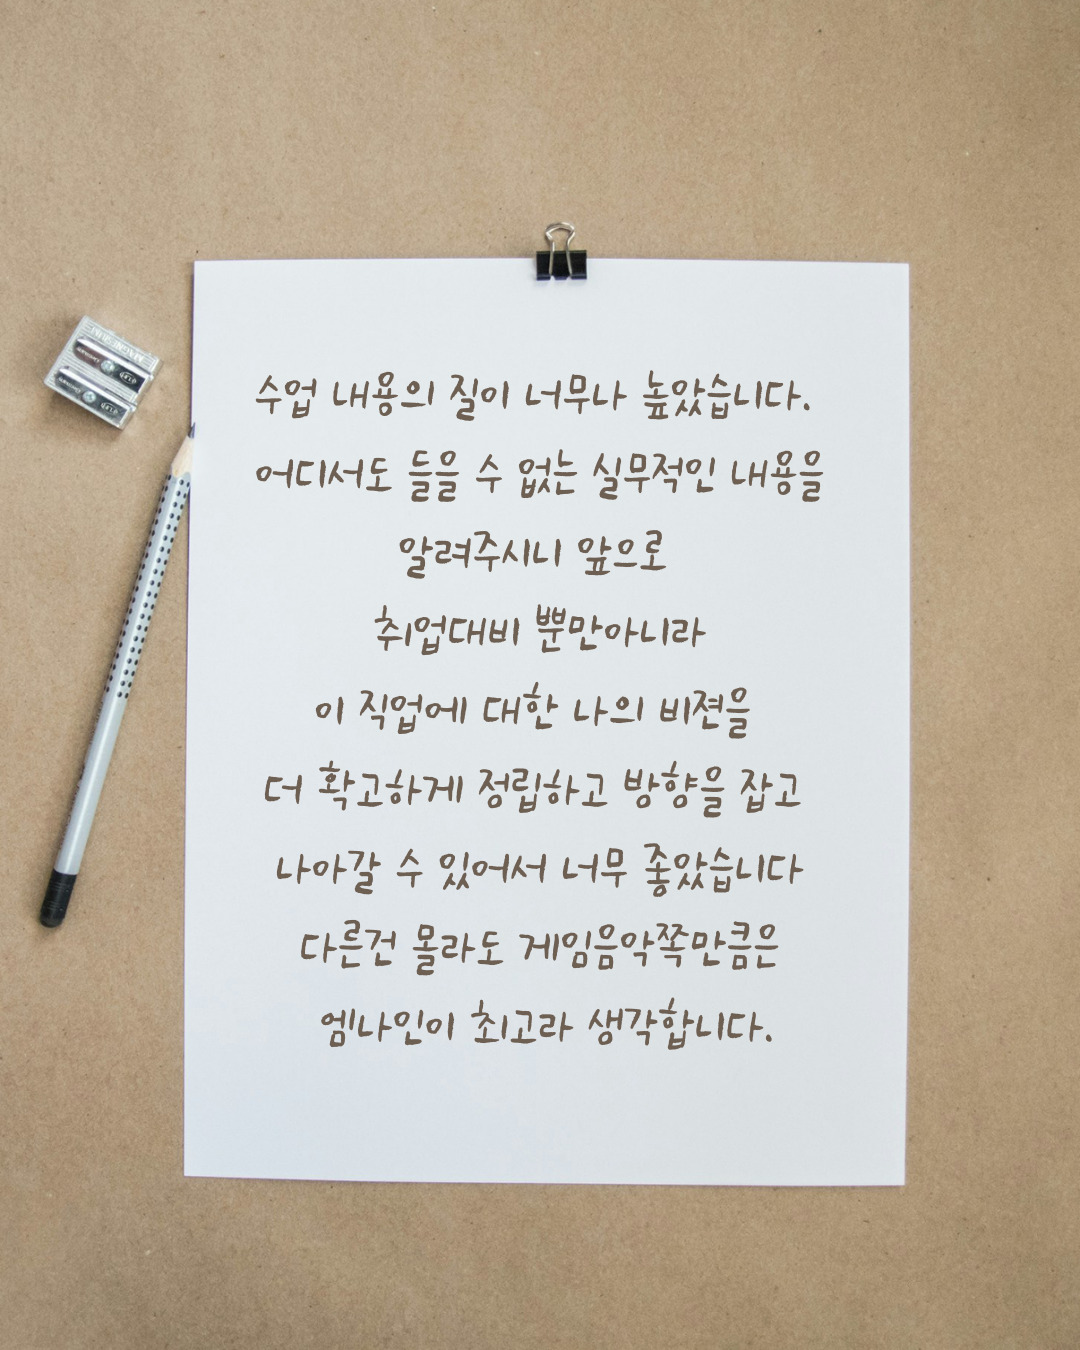 수업 내용의 질이 너무나 높았습니다.
어디서도 들을 수 없는 실무적인 내용을
알려주시니 앞으로
취업대비 뿐만아니라
이 직업에 대한 나의 비젼을
더 확고하게 정립하고 방향을 잡고
나아갈 수 있어서 너무 좋았습니다
다른건 몰라도 게임음악쪽만큼은
엠나인이 최고라 생각합니다.